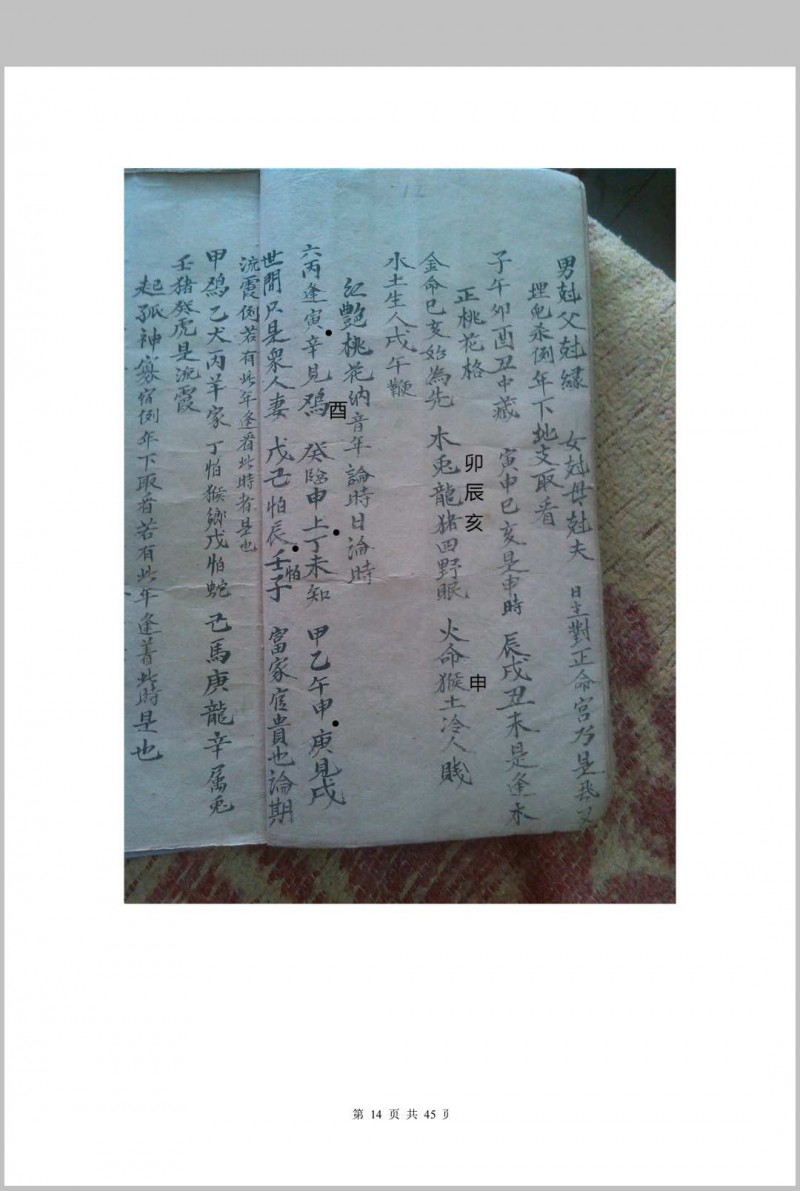 男尅父尅 女尅母尅夫 日主對正命宮乃是
埋兒杀例年下地支取看
子午卯酉丑中藏 寅申巳亥是申時 辰戌丑未是逢木
正桃花格
金命巳亥始為先 木兎龍猪四野眠 火命猴土冷人賤
卯辰亥
申
水土生人戌午鞭
紅艷桃花纳音年論時日論時
六丙逢寅辛見鷄 癸臨申上丁未知 甲乙午申庚見戌
酉
世間只是衆人妻 戊己怕辰壬怕子 富家官貴也論期
流霞例若有此年逢看此時者是也
甲鷄乙犬丙羊家 丁怕猴鄉戊怕蛇 己馬庚龍辛属兎
壬猪癸虎是流霞
起孤神寡宿例年下取看若有此年逢着此時是也
第 14 页 共 45